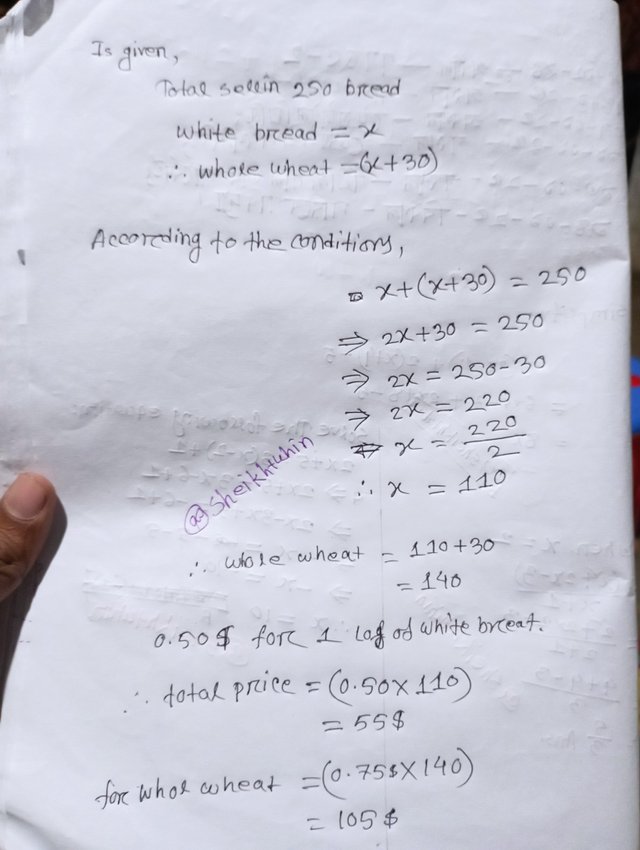 Is given,
Total sellin 250 bread
white bread = x
∴ whole wheat = (x+30)
According to the conditions,
x+(x+30) = 250
⇒ 2x+30 = 250
⇒ 2x = 250-30
⇒ 2x = 220
⇒ x = 220/2
∴ x = 110
@Sheikhtuhin
∴ whole wheat = 110+30
= 140
0.50$ for 1 lof od white breat.
∴ total price = (0.50×110)
= 55$
for whol wheat = (0.75$×140)
= 105$